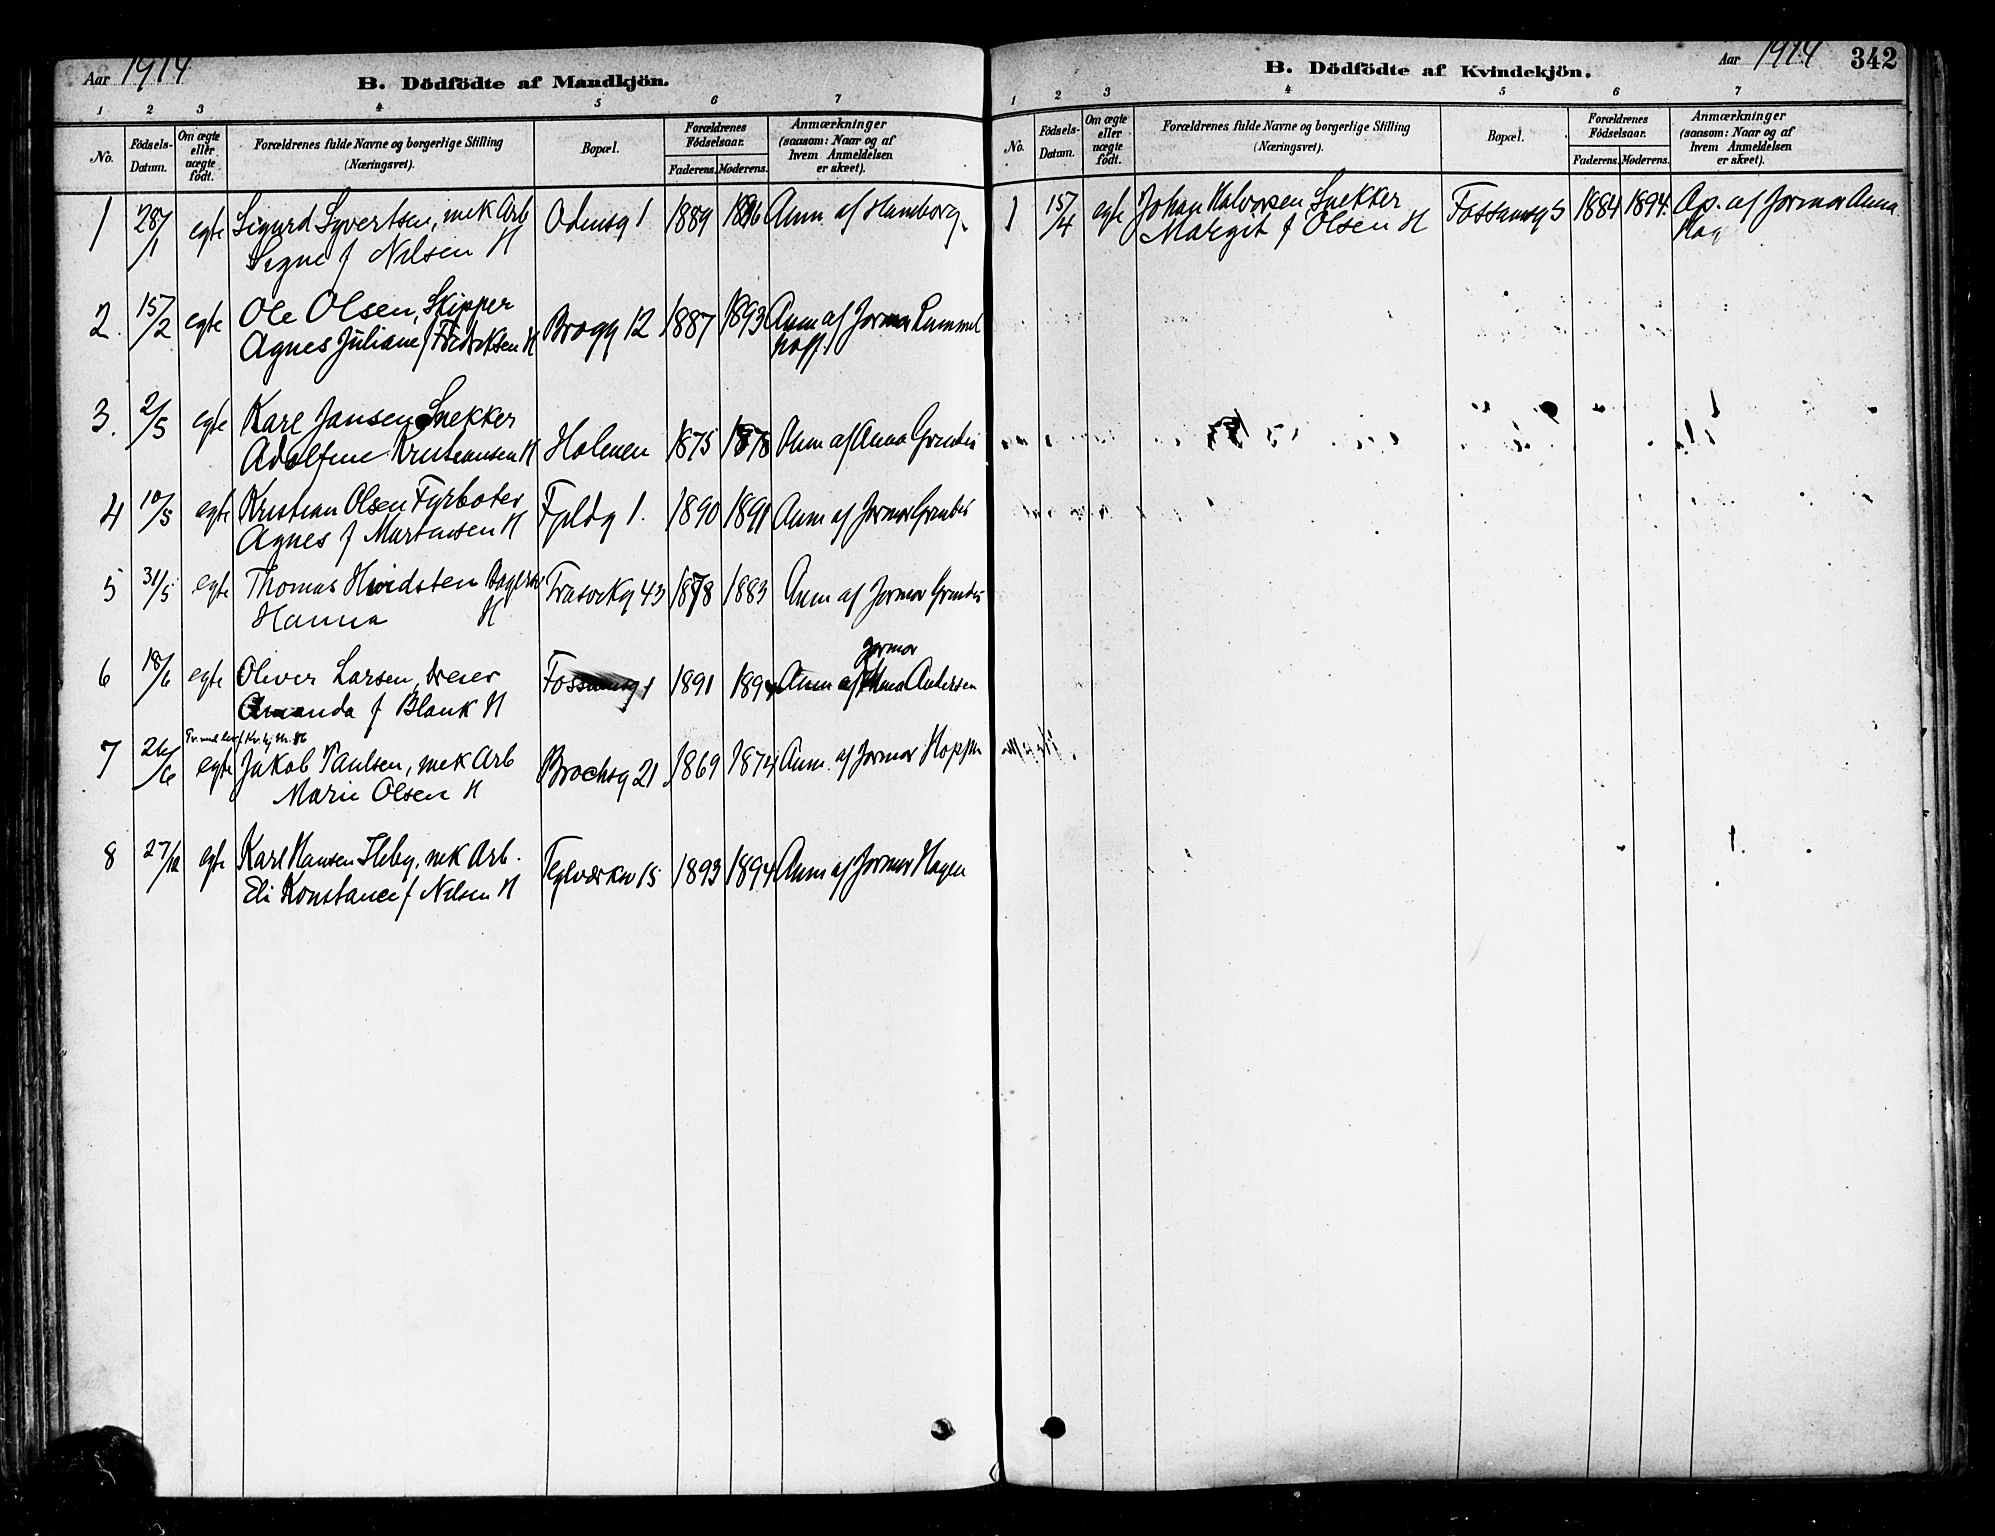 Aar 1914
B. Dödfödte af Mandkjön.
1 2 3 4 5 6 7
No. Födsels-Datum. Om ægte eller uægte födt. Forældrenes fulde Navne og borgerlige Stilling (Næringsvei). Bopæl. Forældrenes Födselsaar. Faderens. Moderens. Anmærkninger (saasom: Naar og af hvem Anmeldelsen er skeet).
1 28/1 egte Sigurd Syvertsen, mek Arb Odinsg 1 1889 1886 Anm af Hamborg
Signe f Nilsen H
2. 15/2 egte Ole Olsen, Skipper Brogg 12 1887 1893 Anm af Jormor
Agnes Juliane f Fredriksen H
3. 2/5 egte Karl Jansen Snekker Holmen 1875 1878 Anm af Anna
Adolfine Kristiansen H
4 10/5 egte Kristian Olsen Fyrbøter 1. 1890 1891 Anm af Jormor
Agnes f Martinsen H
5 31/5 egte Thomas Hvidsten 43 1878 1883 Anm af Jormor
Hanna H
jormor
6 18/6 egte Oliver Larsen, Dreier Fossumsg 1 1891 Anm af Andersen
Amanda f Blank H
7 26/6 egte Jakob Paulsen, mek Arb Brochsg 21 1869 1874 Anm. af Jormor
Marie Olsen H
8 27/12 egte Karl Hansen mek Arb. Teglverkv 15 1893 1894 Anm af Jormor Hagen
Eli Konstance f Nilsen H
Aar 1914 342
B. Dödfödte af Kvindekjön.
1 2 3 4 5 6 7
No. Födsels-Datum. Om ægte eller uægte födt. Forældrenes fulde Navne og borgerlige Stilling (Næringsvei). Bopæl. Forældrenes Födselsaar. Faderens. Moderens. Anmærkninger (saasom: Naar og af hvem Anmeldelsen er skeet).
1 15/4 egte Johan Halvorsen Snekker Fossumsg 5 1884 1894. af Jormor Anna
Margit f Olsen H